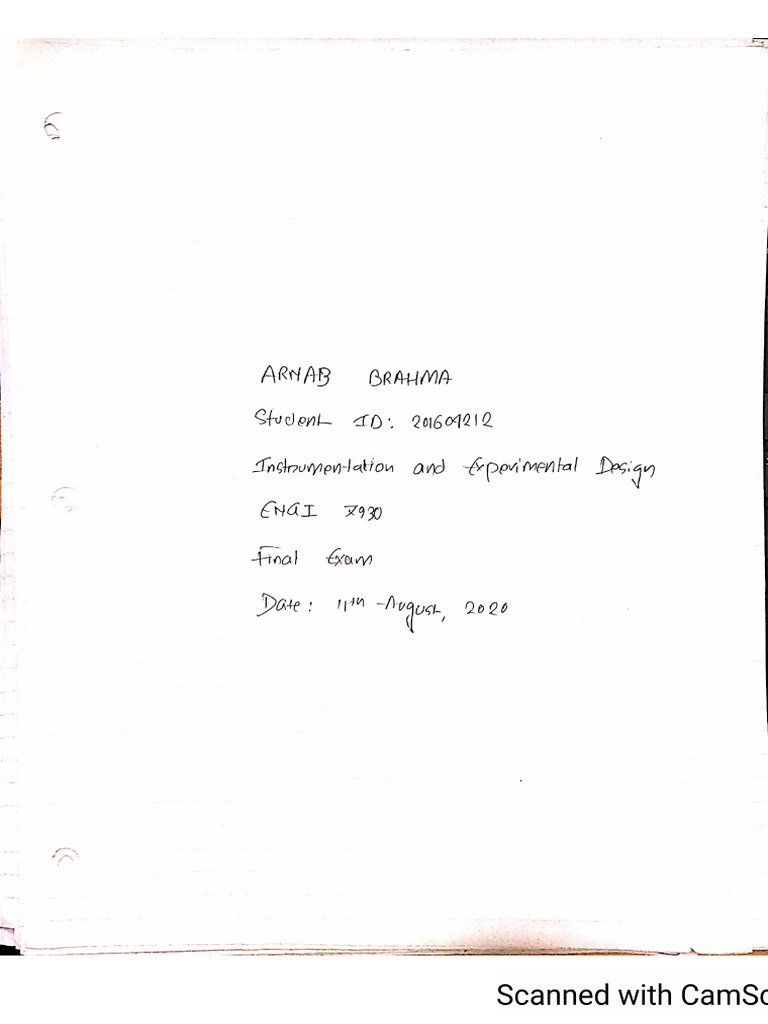 ARNAB BRAHMA
Student ID: 201609212
Instrumentation and Experimental Design
ENGI 7930
Final Exam
Date: 11th August, 2020
Scanned with CamSc